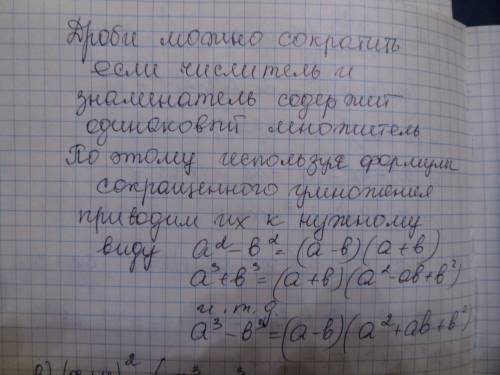 Дроби можно сократить
если числитель и
знаменатель содержит
одинаковый множитель
По этому используя формулы
сокращенного умножения
приводим их к нужному
виду a² - b² = (a - b)(a + b)
a³ + b³ = (a + b)(a² - ab + b²)
и.т.д.
a³ - b³ = (a - b)(a² + ab + b²)